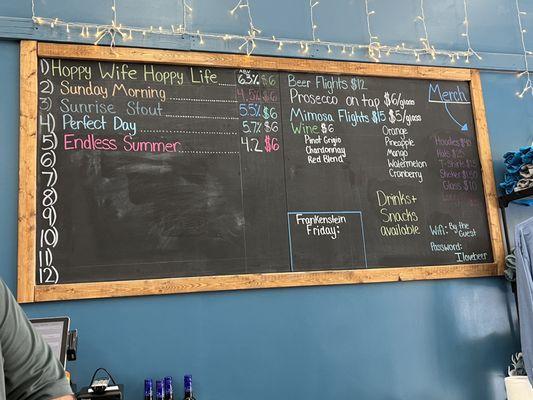 ABV
1) Hoppy Wife Hoppy Life 6.3% $6
2) Sunday Morning 4.5% $6
3) Sunrise Stout 5.5% $6
4) Perfect Day 5.7% $6
5) Endless Summer 4.2 $6
6)
7)
8)
9)
10)
11)
12)
Beer Flights $12
Prosecco on tap $6/glass
Mimosa Flights $15 $5/glass
Wine $6
Pinot Grigio
Chardonnay
Red Blend
Orange
Pineapple
Mango
Watermelon
Cranberry
Frankenstein
Friday:
Drinks+
Snacks
available
Merch
Hoodies $40
Hats $25
T-Shirts $25
Shaker $15
Glass $10
Wifi: By the
Guest
Password:
Ilovebeer